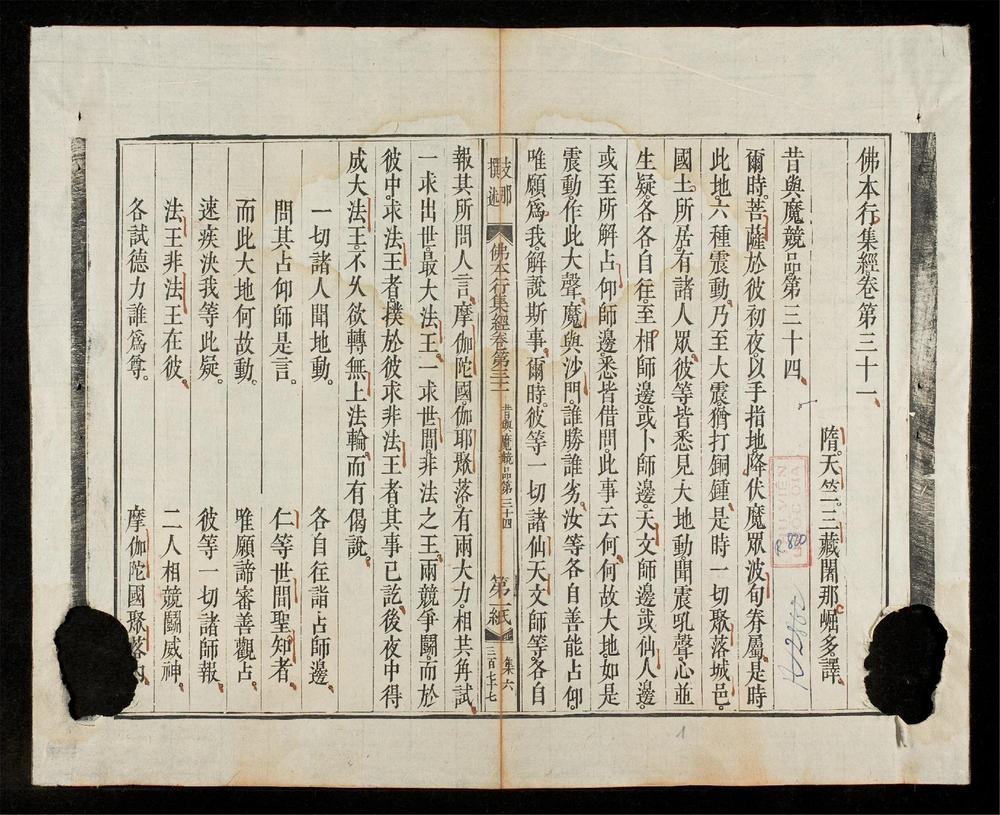 佛本行集經卷第三十一
隋。天竺。三藏闍那崛多。譯
昔與魔競品第三十四
爾時。菩薩於彼初夜。以手指地。降伏魔眾波旬眷屬。是時
此地。六種震動。乃至大震。猶打銅鍾。是時一切聚落城邑。
國土。所居。有諸人眾。彼等皆悉見大地動。聞震吼聲。心並
生疑。各各自往。至相師邊。或卜師邊。天文師邊。或仙人邊。
或至所解占仰師邊。悉皆借問。此事云何。何故大地。如是
震動。作此大聲。魔與沙門。誰勝誰劣。汝等各自善能占仰。
唯願為我。解說斯事。爾時。彼等一切諸仙天文師等。各自
支那
撰述
佛本行集經卷第三十一
昔與魔競品第三十四
第一紙
集六
三百七十七
報其所問人言。摩伽陀國。伽耶聚落。有兩大力。相共角試。
一求出世。最大法王。一求世間。非法之王。兩競爭鬭。而於
彼中。求法王者。撲於彼求非法王者。其事已訖。後夜中得
成大法王。不久欲轉無上法輪。而有偈說。
一切諸人聞地動。 各自往詣占師邊。
問其占仰師是言。 仁等世間聖知者。
而此大地何故動。 唯願諦審善觀占。
速疾決我等此疑。 彼等一切諸師報。
法王非法王在彼。 二人相競鬭威神。
各試德力誰為尊。 摩伽陀國聚落內。
R 820
1